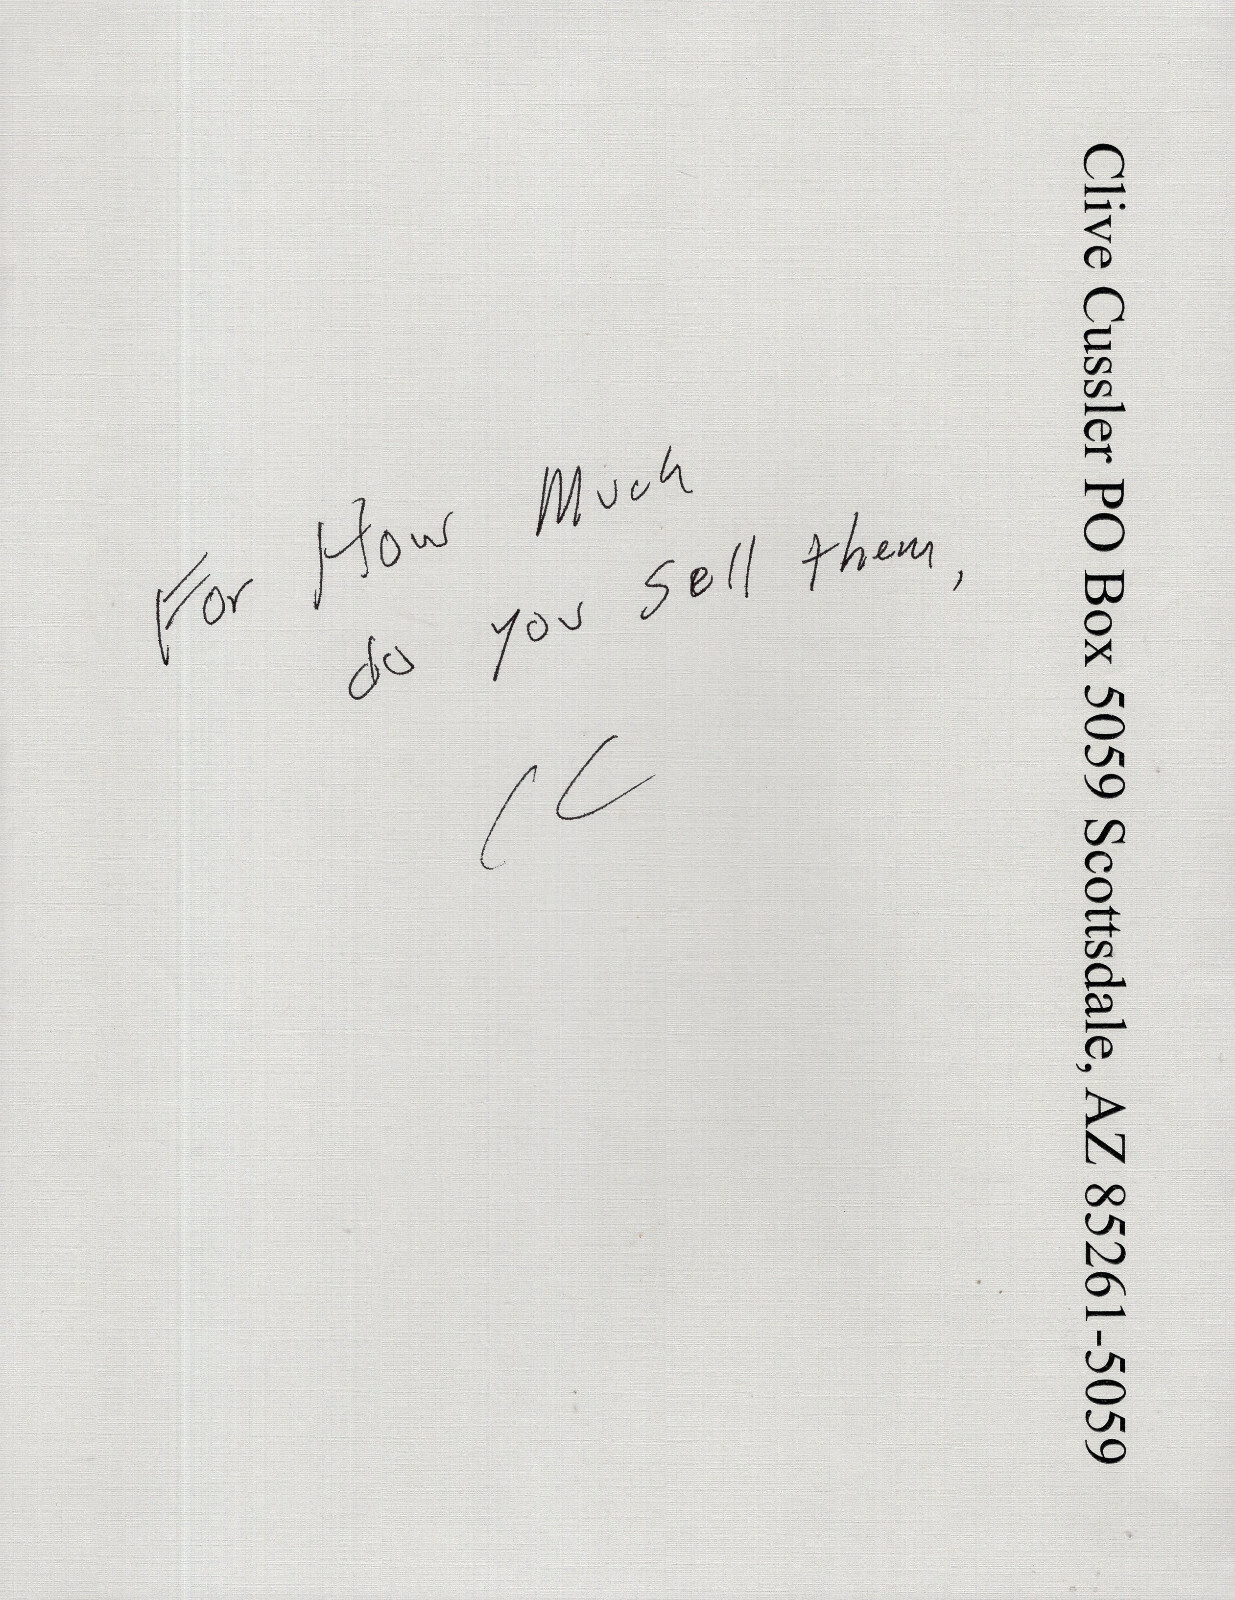 For How Much
do you sell them,
CC
Clive Cussler PO Box 5059 Scottsdale, AZ 85261-5059